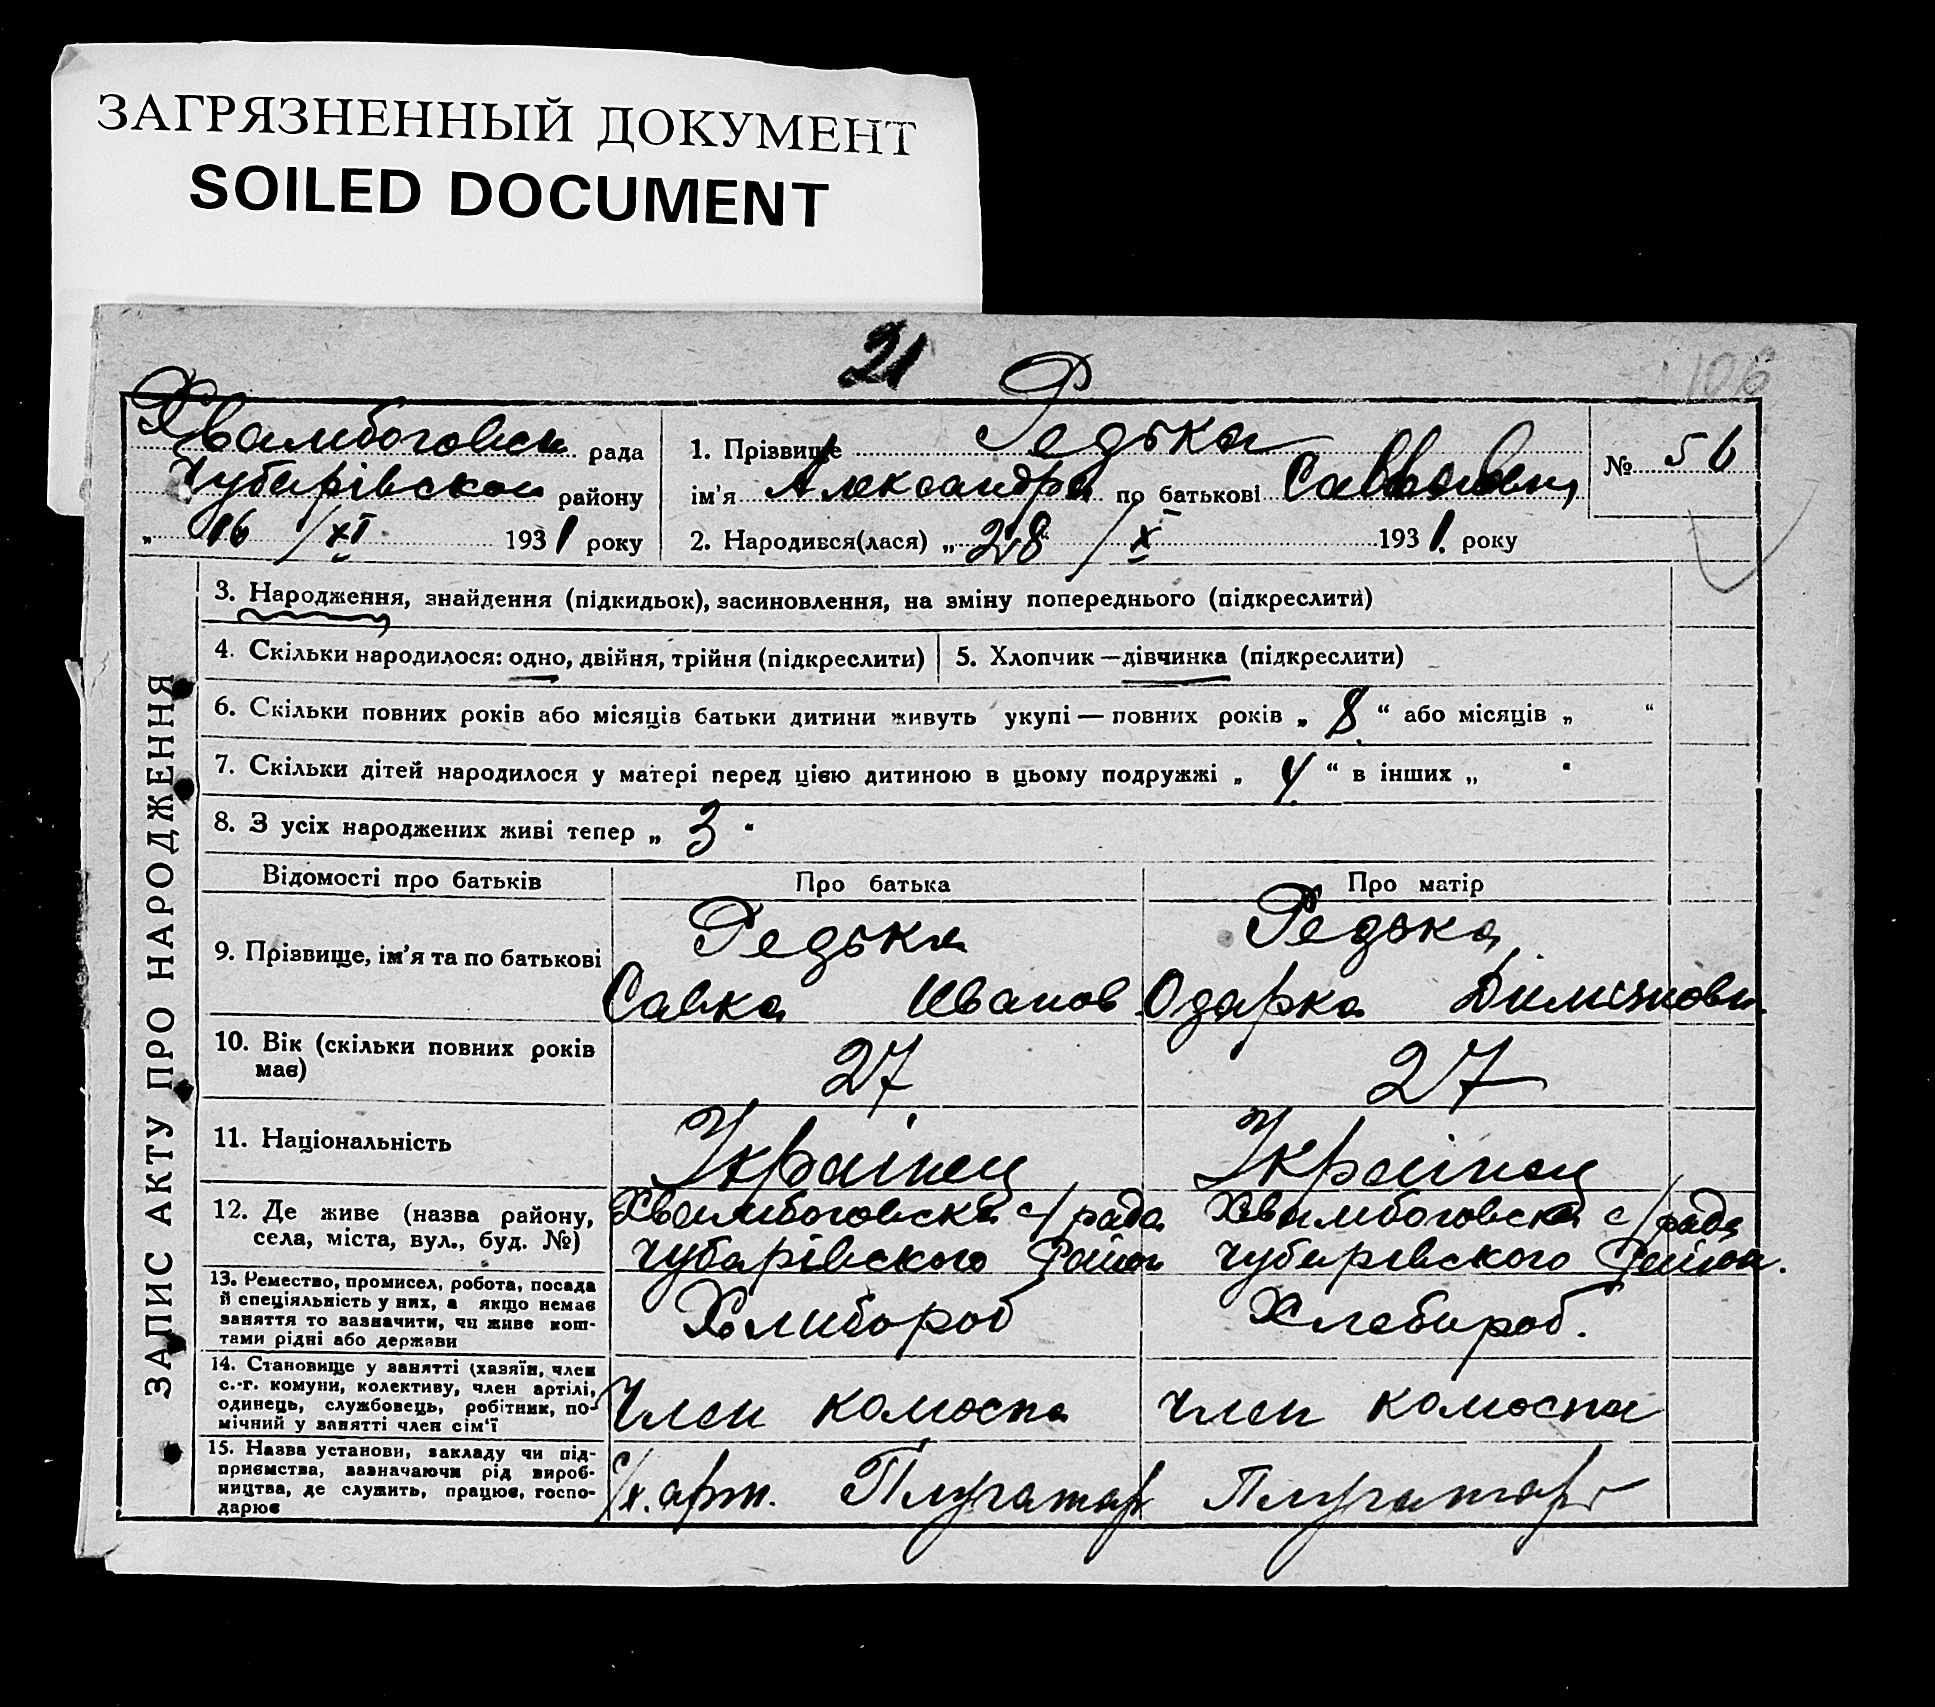 ЗАГРЯЗНЕННЫЙ ДОКУМЕНТ
SOILED DOCUMENT
21
106
Хвалибоговск рада
Чубарівского району
„ 16/XI 1931 року
1. Прізвище Редька
ім'я Александра по батькові Саввовн
2. Народився(лася) „ 28/X 1931. року
№ 56
ЗАПИС АКТУ ПРО НАРОДЖЕННЯ
3. Народження, знайдення (підкидьок), засиновлення, на зміну попереднього (підкреслити)
4. Скільки народилося: одно, двійня, трійня (підкреслити)
5. Хлопчик — дівчинка (підкреслити)
6. Скільки повних років або місяців батьки дитини живуть укупі — повних років „ 8 “ або місяців „ “
7. Скільки дітей народилося у матері перед цією дитиною в цьому подружжі „ 4 “ в інших „ “
8. З усіх народжених живі тепер „ 3 “
Відомості про батьків
Про батька
Про матір
9. Прізвище, ім'я та по батькові
Редька
Савка Иванов
Редька
Одарка
10. Вік (скільки повних років
має)
27
27
11. Національність
Українец
Українец
12. Де живе (назва району,
села, міста, вул., буд. №)
Хвалибоговска с/рада
Чубарівского Район
Хвалибоговска с/рада
Чубарівского Район.
13. Ремество, промисел, робота, посада
й спеціяльність у них, а якщо немає
заняття то зазначити, чи живе кош-
тами рідні або держави
Хлибороб
Хлебороб.
14. Становище у занятті (хазяїн, член
с.-г. комуни, колективу, член артілі,
одинець, службовець, робітник, по-
мічний у занятті член сім'ї
Член колюспа
Член колюспа
15. Назва установи, закладу чи під-
приємства, зазначаючи рід вироб-
ництва, де служить, працює, госпо-
дарює
с/х. арт. Плугатарь
Плугатарь